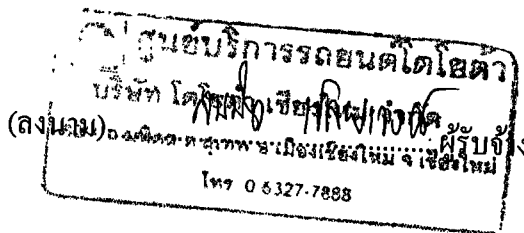 ศูนย์บริการรถยนต์โตโยต้า
บริษัท โตโยต้า เชียงใหม่ จำกัด
(ลงนาม) ผู้รับจ้าง
ต.สุเทพ อ.เมืองเชียงใหม่ จ.เชียงใหม่
โทร 0 5327-7888